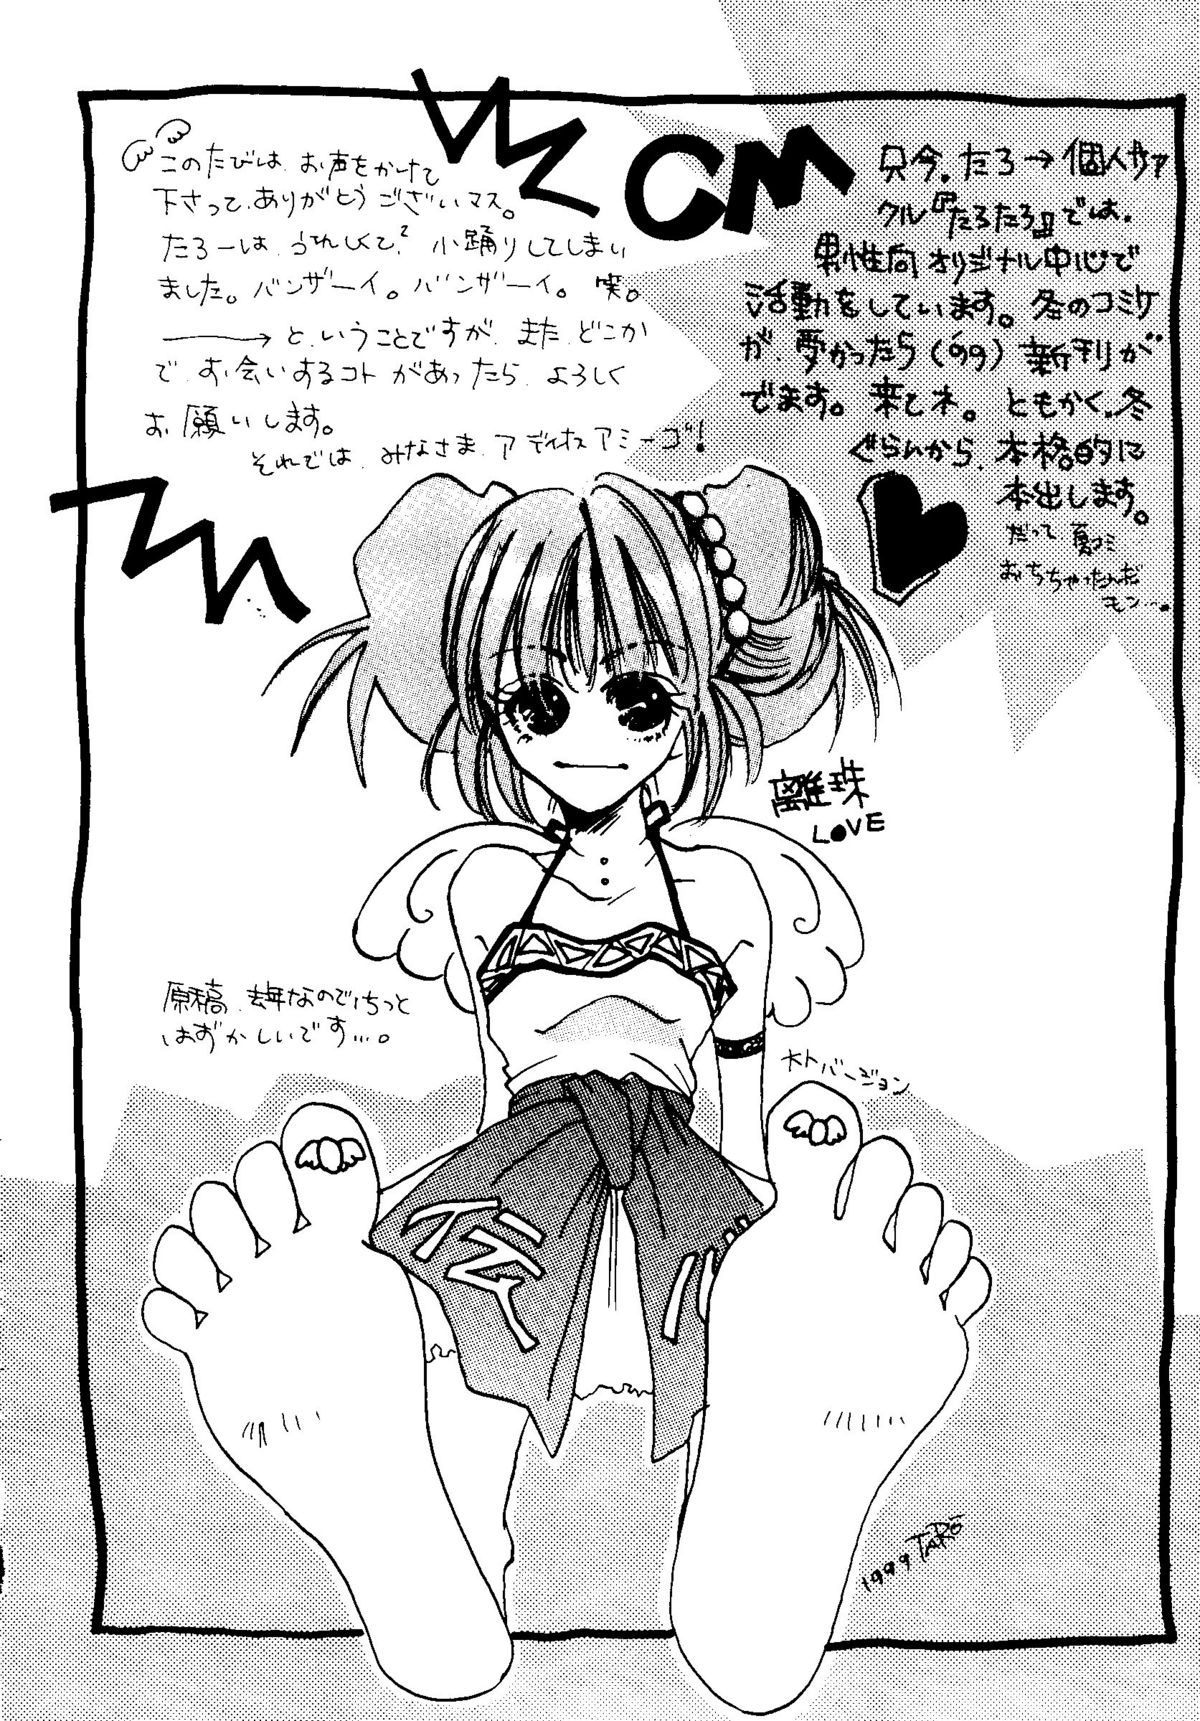 このたびは、お声をかけて
下さって、ありがとうございマス。
たろーは、うれしくて² 小踊りしてしまい
ました。バンザーイ。バンザーイ。笑。
――→と、いうことですが、また、どこか
で、お会いするコトがあったら、よろしく
お願いします。
それでは、みなさま、アディオスアミーゴ!
CM
只今、たろ→個人サア
クル『たろたろ』では、
男性向オリジナル中心で
活動をしています。冬のコミケ
が、受かったら(99)新刊が
でます。来てネ。ともかく、冬
ぐらんから、本格的に
本出します。
だって夏コミ
おっちゃったんだ
モン…。
離珠
LOVE
原稿、去年なのでちっと
はずかしいです…。
ホトバージョン
1999 TARO